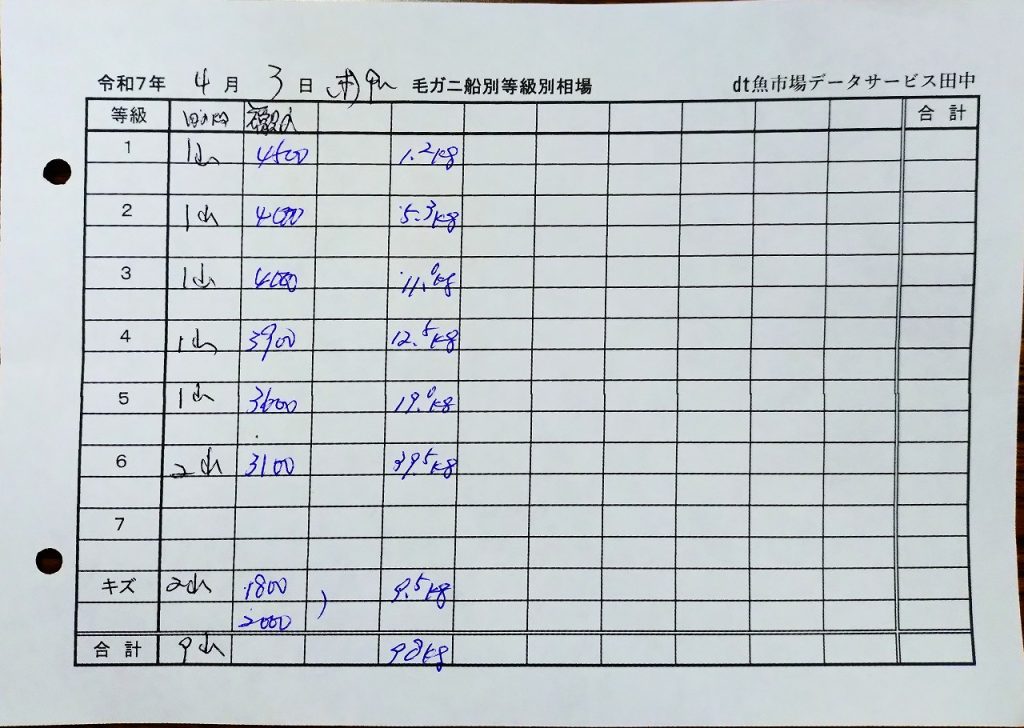 令和7年 4月 3日 (木) 毛ガニ船別等級別相場 dt魚市場データサービス田中
等級 合計
1 1山 4500 1.2kg
2 1山 4000 5.3kg
3 1山 4000 11.0kg
4 1山 3900 12.5kg
5 1山 3600 19.0kg
6 2山 3100 39.5kg
7
キズ 2山 1800 9.5kg
2000 )
合計 9山 98kg